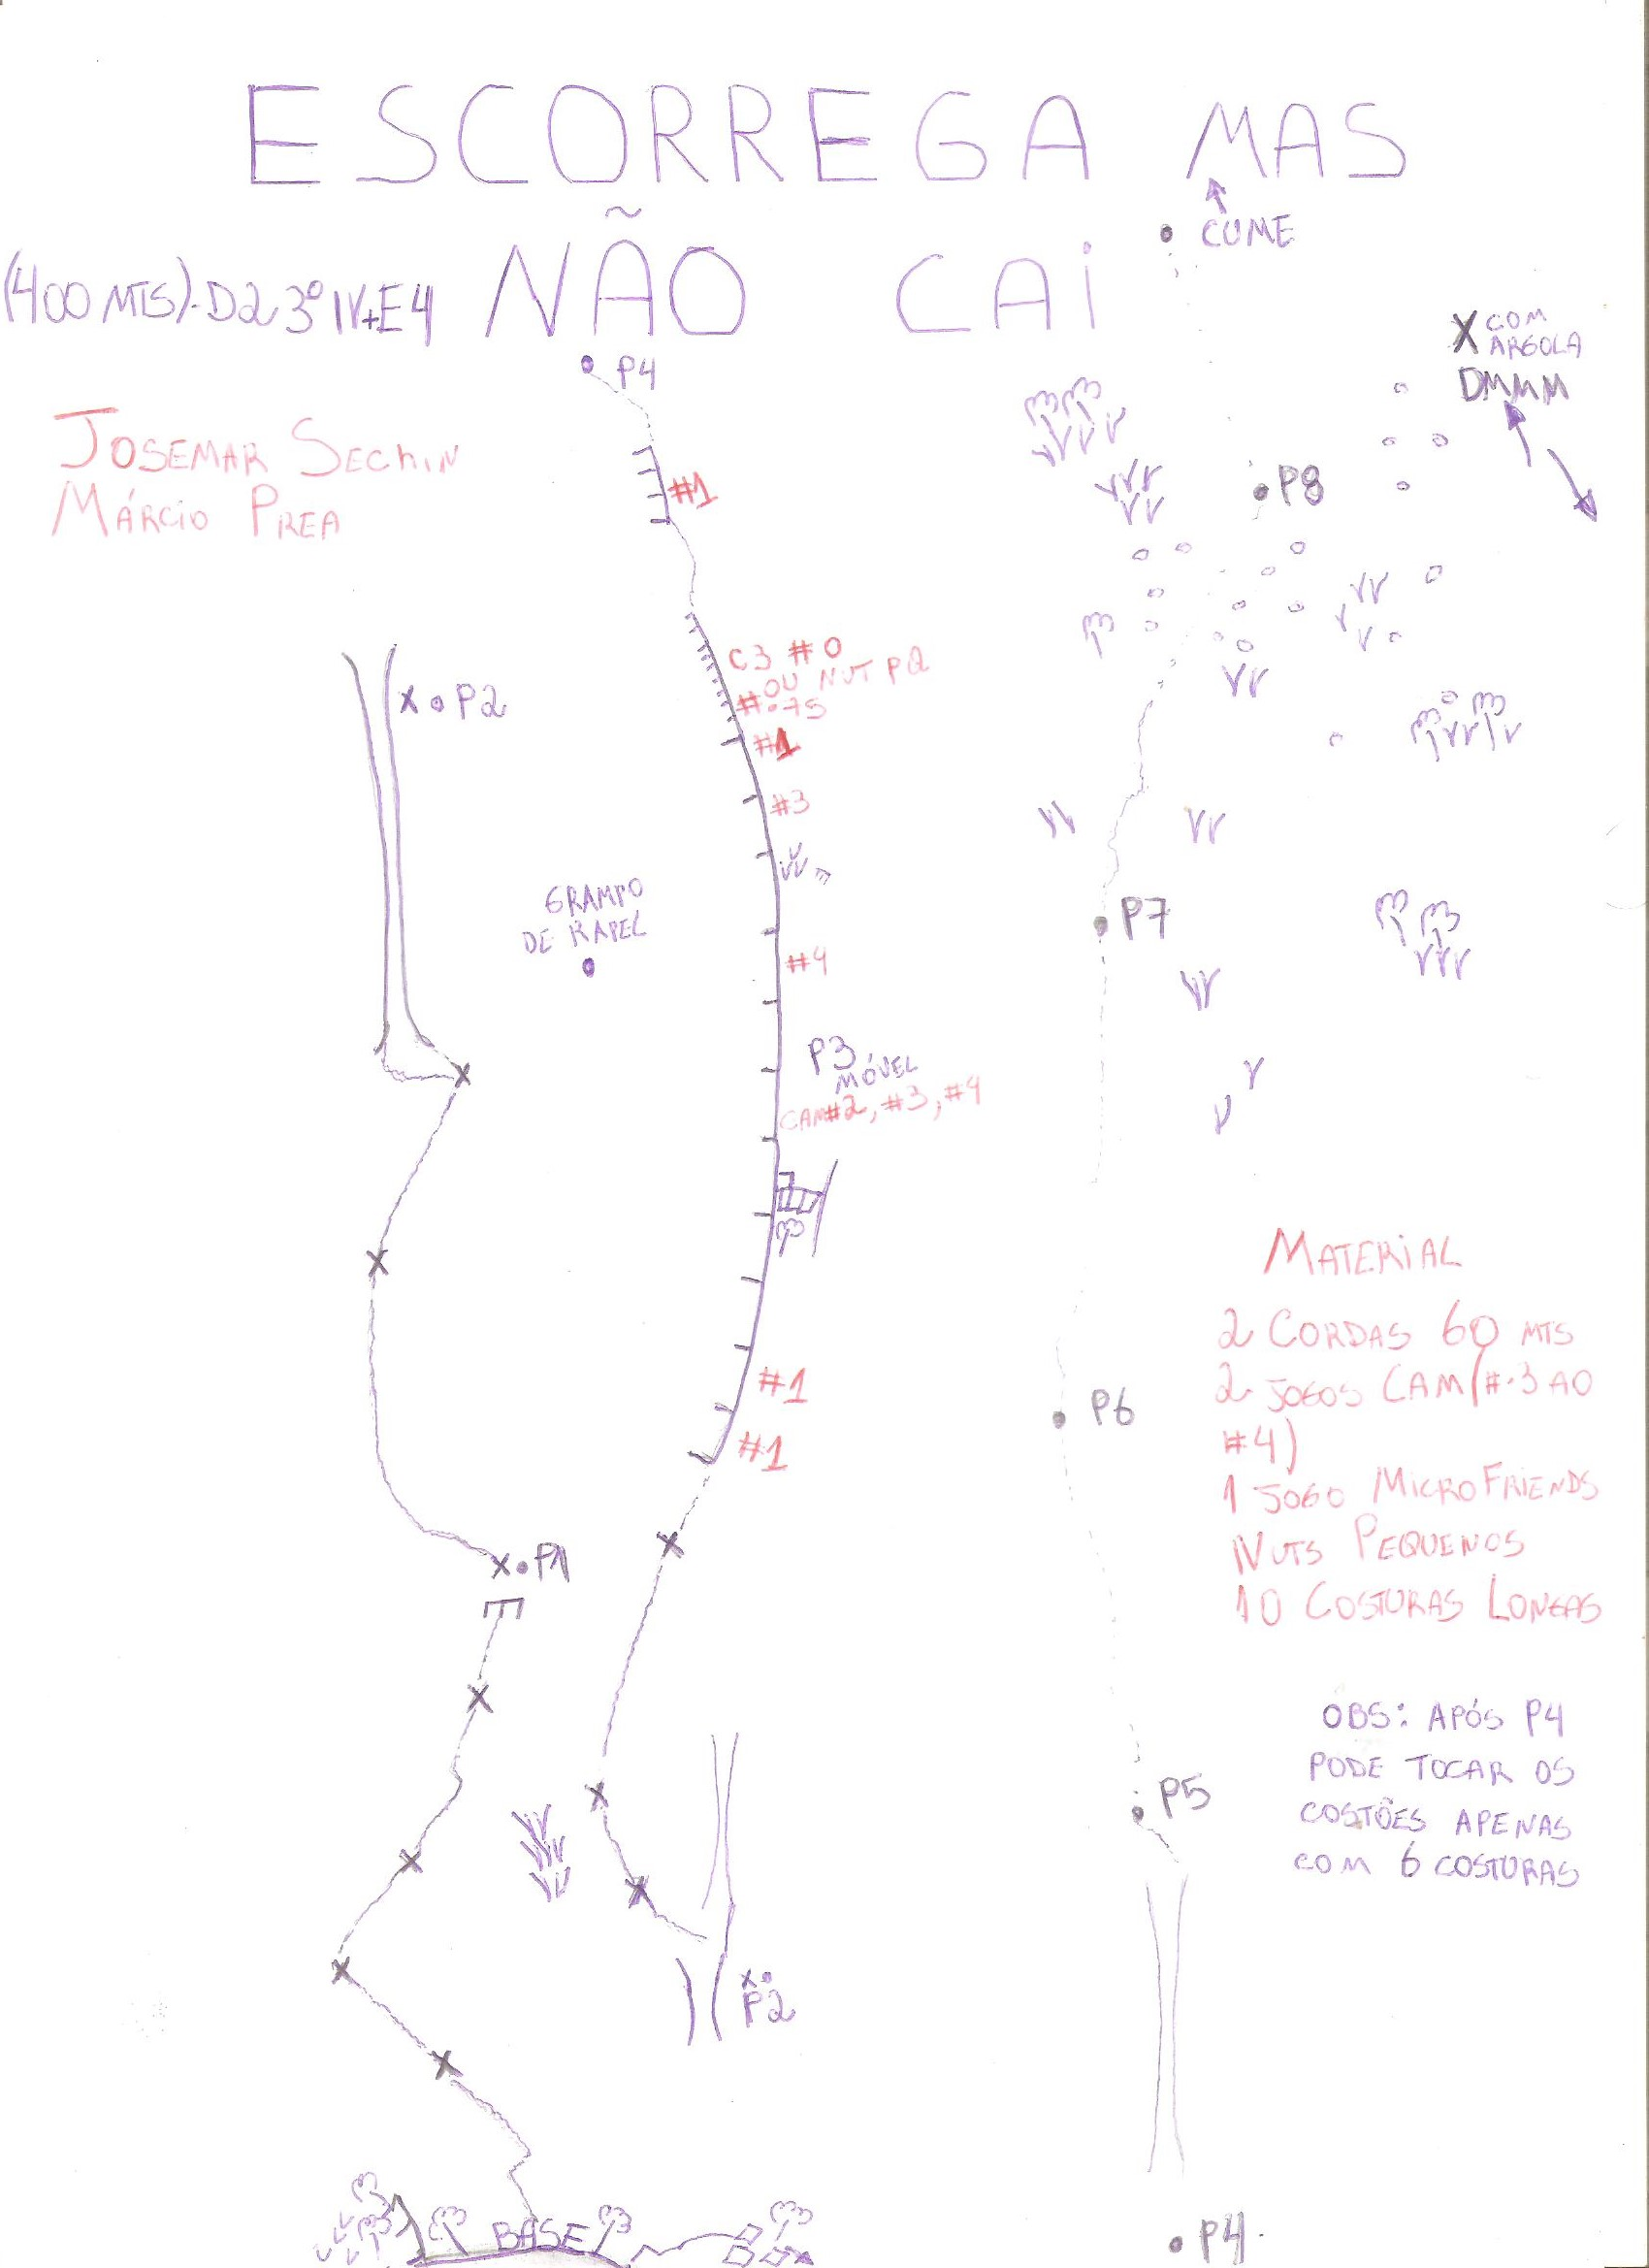 ESCORREGA MAS
NÃO CAI
(400 MTS)-D2 3º IV+E4
CUME
JOSEMAR SECHIN
MÁRCIO PREA
P4
#1
C3 #0
OU NUT PQ
#.75
#1
#3
#4
P3
MÓVEL
CAM#2, #3, #4
#1
#1
X P2
GRAMPO
DE RAPEL
X P1
X
P2
BASE
X COM
ARGOLA
P8
P7
P6
P5
P4
MATERIAL
2 CORDAS 60 MTS
2 JOGOS CAM (#.3 AO
#4)
1 JOGO MICROFRIENDS
NUTS PEQUENOS
10 COSTURAS LONGAS
OBS: APÓS P4
PODE TOCAR OS
COSTÕES APENAS
COM 6 COSTURAS